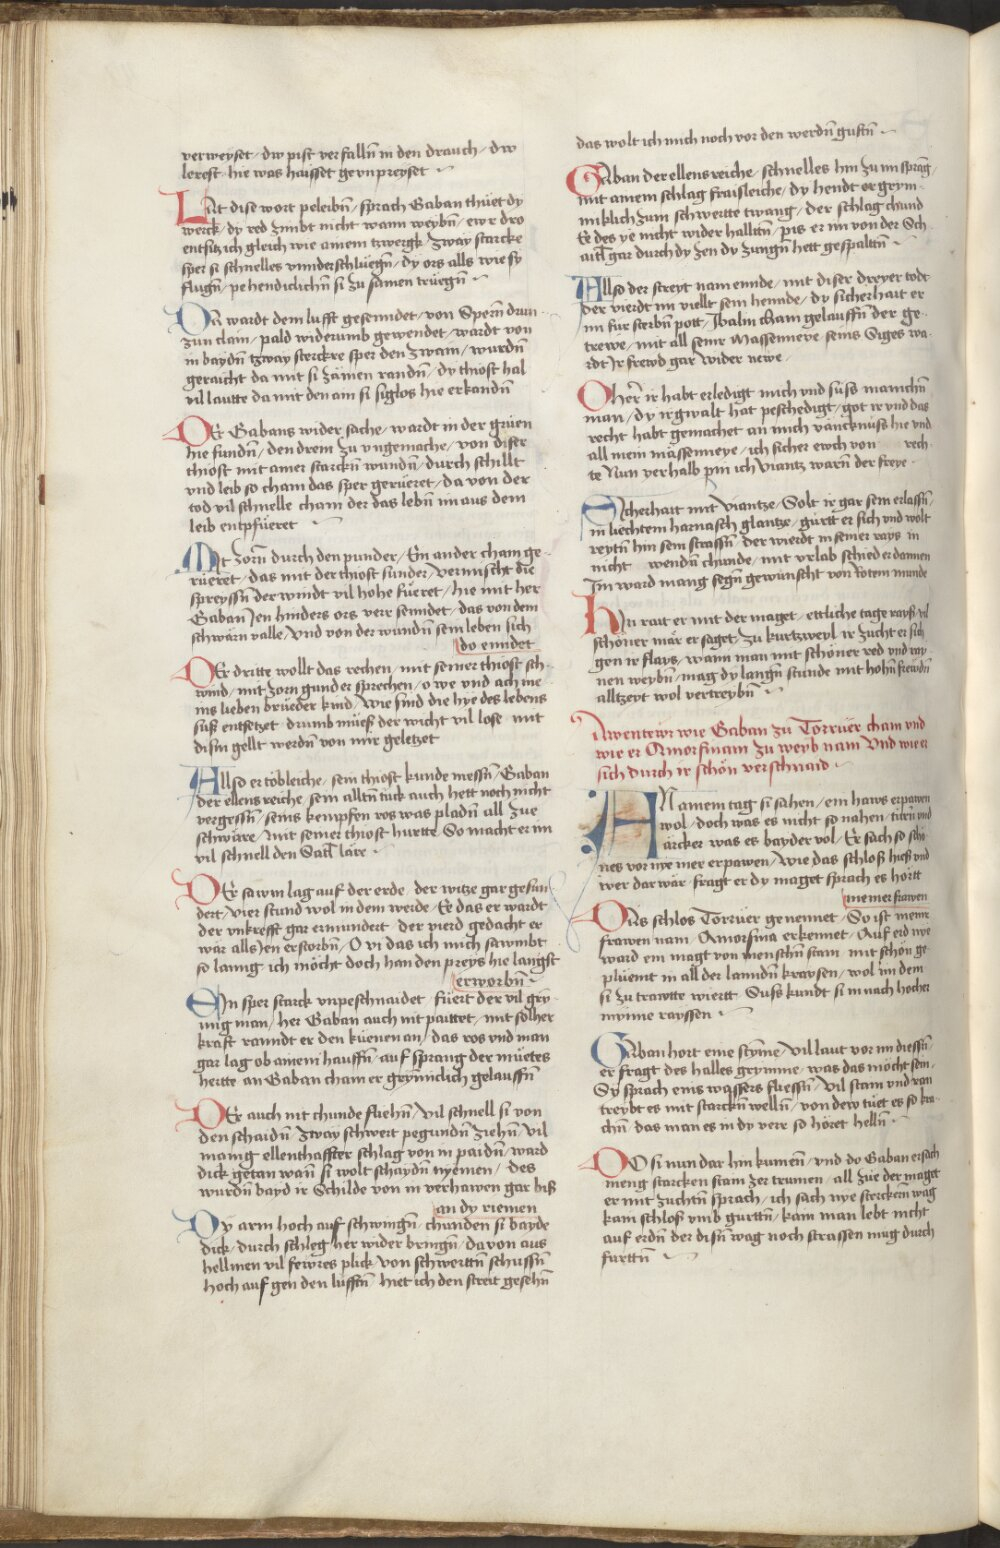 verweyset / dw pist verfallñ in den drauch / dw
lerest hie was haisset ge vnpreyset
Lat dise wort peleibñ / sprach Gaban thuet dy
werck / dy red zimbt nicht wann weybñ / ewr dro
entsitz ich gleich wie amem tzwergk zway starcke
sper si schnelles vnnderschluegñ / dy ors alls wie sy
flugñ / pehendiclichñ si zu samen truegñ
Da wardt dem lufft gesenndet / von Sperñ drun-
zun clain / pald widerumb gewendet / wardt von
in baydñ tzway sterckre sper den zwain / wurdñ
geraicht da mit si zamen randñ / dy thiost hal
vil lautte da mit den ain si siglos hie erkandñ
Der Gabans wider sache / wardt in der grüen
hie fundñ / den drein zu vngemache / von diser
thiost mit ainer starckñ wundñ / durch schillt
vnd leib so cham das sper gerüeret / da von der
tod vil schnelle cham der das lebñ im aus dem
leib entpfüeret
Mit zorñ durch den punder / Ein ander cham ge-
rüeret / das mit der thiost sunder / vermischt die
spreyssñ der windt vil hohe füeret / hie mit her
Gabañ Jen hinders ors verr senndet / das von dem
schwärn valle / vnd von der wundñ sein leben sich
do enndet
Der dritte wollt das rechen / mit seiner thiost sch-
wind / mit zorn gund er sprechen / o we vnd ach mei-
ns lieben brüeder kind / wie sind die hye des lebens
suss entsetzet / drumb müess der wicht vil lose mit
dism gellt werdñ von mir geletzet
Allso er töbleiche / sein thiost kunde messñ / Gaban
der ellens reiche / sein alltñ tück auch hett noch nicht
vergessñ / seins kempfen ros was pladñ all zue
schwäre / mit seiner thiost hurtte / So macht er im
vil schnell den Satl läre
Der sawm lag auf der erde / der witze gar gesün-
dert / vier stund wol in dem werde / Ee das er wardt
der vnkrefft gar ermundert / der vierd gedacht er
wär alls Jen erstorbñ / O vi das ich mich sawmbt
so lanng / ich möcht doch han den preys hie langst
erworbñ
Ein sper starck vnpeschnaidet / füert der vil gry-
mig man / her Gaban auch nit paittet / mit solher
kraft ranndt er den küenen an / das ros vnd man
gar lag ob ainem hauffñ / auf sprang der müetes
hertte an Gaban cham er grymiclich gelauffñ
Der auch nit chunde fliehñ / Vil schnell si von
den schaidñ / zway schwert pegundñ ziehñ / vil
manig ellenthaffter schlag von in paidñ / ward
dick getan wañ si wolt schaydñ nyemen / des
wurdñ bayd ir Schilde von in verhawen gar biss
an dy riemen
Dy arm hoch auf schwingñ / chunden si bayde
dick / durch schleg her wider bringñ / da von aus
hellmen vil fewres plick / von schwerttñ schussñ
hoch auf gen den lüfftñ / hiet ich den streit gesehñ
das wolt ich mich noch vor den werdñ güftñ
Gaban der ellens reiche / schnelles hin zu im sprag /
mit ainem schlag fraisleiche / dy hendt er grym-
miklich zum schwertte twang / der schlag chund
Er des ye nicht wider halltñ / pis er im von der Sch-
aitl gar durch dy zen dy zungñ hett gespalltñ
Allso der streyt nam ennde / mit diser dreyer todt
der vierdt im viellt sein hennde / dy sicherhait er
im für sterbñ pott / Jbalin cham gelauffñ der ge-
trewe / mit all seinr Massennieye / seins Siges wa-
rdt Jr frewd gar wider newe
O herr ir habt erledigt / mich vnd suss manichñ
man / dy ir gwalt hat peschedigt / got ir vnd das
recht habt gemachet an mich vancknüss hie vnd
all mein massenieye / ich sicher ewch von rech-
te Nun verhalb pin ich Viantz warñ der freye
Sicherhait mit viantze / Solt ir gar sein erlassñ /
in liechtem harnasch glantze / gürtt er sich vnd wolt
reytñ hin sein strassñ / der wierdt in seiner rays in
nicht wendñ chunde / mit vrlab schied er dannen
Im ward mang segñ gewünscht von Rotem munde
Hin rait er mit der maget / ettliche tage rays / vil
schöner mär er saget / zu kurtzweyl ir zucht er sich
gen ir flays / wann man mit schöner red vnd ray-
nen weybñ / mag dy langñ stunde mit hohñ frewdñ
alltzeyt wol vertreybñ
Awentewr wie Gaban zu Torrüer cham vnd
wie er Amorfinam zu weyb nam Vnd wie er
sich durch ir schön verschnaid
An ainem tag si sahen / ein haws erpawen
wol / doch was es nicht so nahen / türn vnd
ärcker was es bayder vol / Er sach so schö-
nes vor nye mer erpawen / wie das schloss hiess vnd
wer dar wär / fragt er dy maget sprach es hörtt
meiner frawen
Dits schlos Torrüer genennet / So ist meinr
frawen nam / Amorfina erkennet / Auf erd nye
ward ein magt von menschñ stam / mit schön ge-
plüemt in all der lanndñ kraysen / wol im dem
si zu trawtte wiertt / Suss kundt si in nach hocher
mynne rayssen
Gaban hort eine styme / vil laut vor im diessñ
er fragt des halles grymme / was das möcht sein /
Sy sprach eins wassers fliessñ / vil stain vnd ran
treybt es mit starckñ wellñ / von dew tuet es so kra-
chñ / das man es in dy verr so höret hellñ
Do si nun dar hin kumeñ / vnd do Gaban ersach
meng starcken stam zer trumen / all zue der maget
er mit zuchtñ sprach / ich sach nye sterckern wag
kain schloss vmb gurttñ / kain man lebt nicht
auf erdñ der disñ wag noch strassen mug durch
furttñ